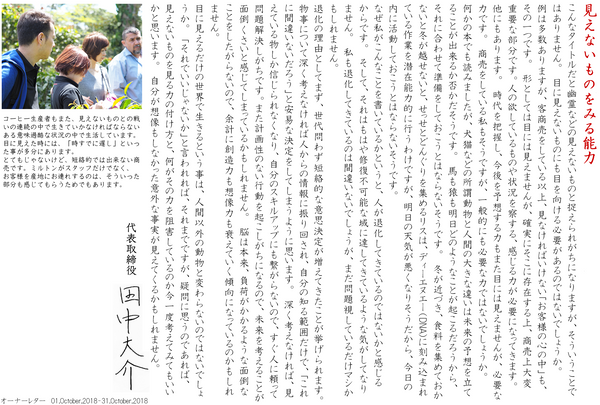 見えないものをみる能力
こんなタイトルだと幽霊などの見えないものと捉えられがちになりますが、そういうことで
はありません。 目に見えないものにも目を向ける必要があるのではないでしょうか。
例は多数ありますが、客商売をしている以上、見なければいけない「お客様の『この中』も、
その一つです。 形としては目には見えませんが、確実にそこに存在する上、商売上大変
重要な部分です。 人の欲しているものや状況を察する、感じる力が必要になってきます。
他にもあります。 時代を把握し、今後を予想する力もまた目には見えませんが、必要な
力です。 商売をしている私もそうですが、一般的にも必要な力ではないでしょうか。
何かの本でも読みましたが、犬猫などの所謂動物と人間の大きな違いは未来の予想を立て
ることが出来るか否かだそうです。 馬も猿も明日どのようなことが起こるだろうから、
それに合わせて準備をしておこうとはならないそうです。 冬が近づき、食料を集めておか
ないと冬が越せないと、せっせとどんぐりを集めるリスは、ディーエヌエー(DNA)に刻み込まれ
ている作業を潜在能力的に行うわけですが、明日の天気が悪くなりそうだから、今日の
内に活動しておこうとはならないそうです。
なぜ私がこんなことを書いているかというと、人が退化してきているのではないかと感じる
からです。 そして、それはもはや修復不可能な域に達してきているような気がしてなり
ません。 私も退化してきているのは間違いないでしょうが、まだ問題視しているだけマシか
もしれません。
退化の理由としてまず、世代問わず短絡的な意思決定が増えてきたことが挙げられます。
物事について深く考えなければ人からの情報に振り回され、自分の知る範囲だけで、「これ
に間違いないだろう」と安易な決定をしてしまうように思います。 深く考えなければ、見
えている物しか信じられなくなり、自分のスキルアップにも繋がらないので、すぐ人に頼って
問題解決しがちです。また計画性のない行動を起こしがちになるので、未来を考えることが
面倒くさいと感じてしまっているのかもしれません。 脳は本来、負荷がかかるような面倒な
ことをしたがらないので、余計に創造力も想像力も衰えていく傾向になっているのかもしれ
ません。
目に見えるだけの世界で生きるという事は、人間以外の動物と変わらないのではないでしょ
うか。 「それでいいじゃないか」と言われれば、それまでですが、疑問に思うのであれば、
見えないものを見る力の付け方と、何がその力を阻害しているのか今一度考えてみてもいい
かと思います。 自分が想像もしなかった意外な事実が見えてくるかもしれません。
コーヒー生産者もまた、見えないものとの戦
いの連続の中で生きていかなければならない
ある意味過酷な状況の中で生活しています。
目に見えた時には、「時すでに遅し」といっ
た事が多分にあります。
とてもじゃないけど、短絡的では出来ない商
売です。ミルトンがスタッフだけでなく、
お客様を産地にお連れするのは、そういった
部分も感じてもらうためでもあります。
代表取締役
田中大介
オーナーレター 01,October,2018-31,October,2018